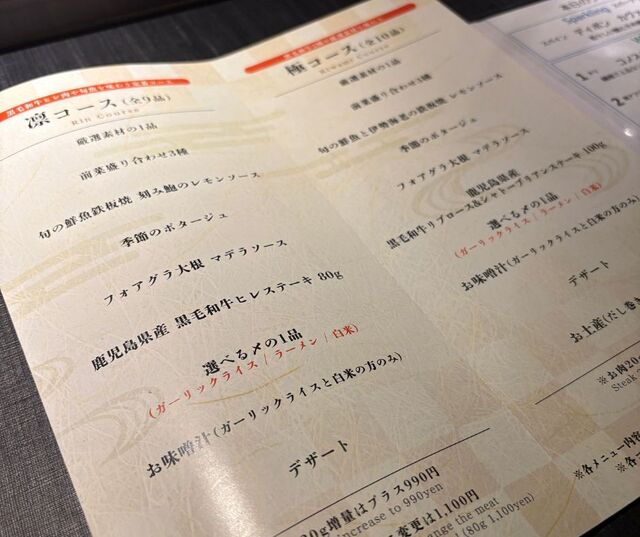 黒毛和牛ヒレ肉や旬魚を味わう定番コース
凛コース(全9品)
Rin Course
厳選素材の1品
前菜盛り合わせ3種
旬の鮮魚鉄板焼 刻み鮑のレモンソース
季節のポタージュ
フォアグラ大根 マデラソース
鹿児島県産 黒毛和牛ヒレステーキ 80g
選べる〆の1品
(ガーリックライス / ラーメン / 白米)
お味噌汁(ガーリックライスと白米の方のみ)
デザート
増量はプラス990円
increase to 990yen
変更は1,100円
the meat
(80g 1,100yen)
極コース(全10品)
Kiwami Course
厳選素材の1品
前菜盛り合わせ3種
旬の鮮魚と伊勢海老の鉄板焼 レモンソース
季節のポタージュ
フォアグラ大根 マデラソース
鹿児島県産
黒毛和牛リブロース&シャトーブリアンステーキ 100g
選べる〆の1品
(ガーリックライス / ラーメン / 白米)
お味噌汁(ガーリックライスと白米の方のみ)
デザート
お土産(だし巻き
※お肉20
Steak
※各メニュー内容
※各
Sparkling
スペイン